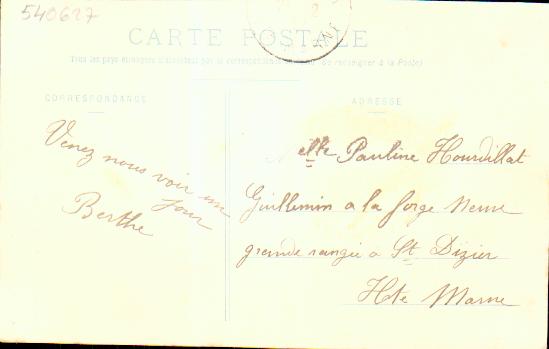 540627
CARTE POSTALE
Tous les pays étrangers n'acceptent pas la correspondance au (Se renseigner à la Poste)
CORRESPONDANCE
ADRESSE
Venez nous voir un
jour
Berthe
Melle Pauline Hourdillat
Guillemin a la forge Neuve
grande rangée a St Dizier
Hte Marne